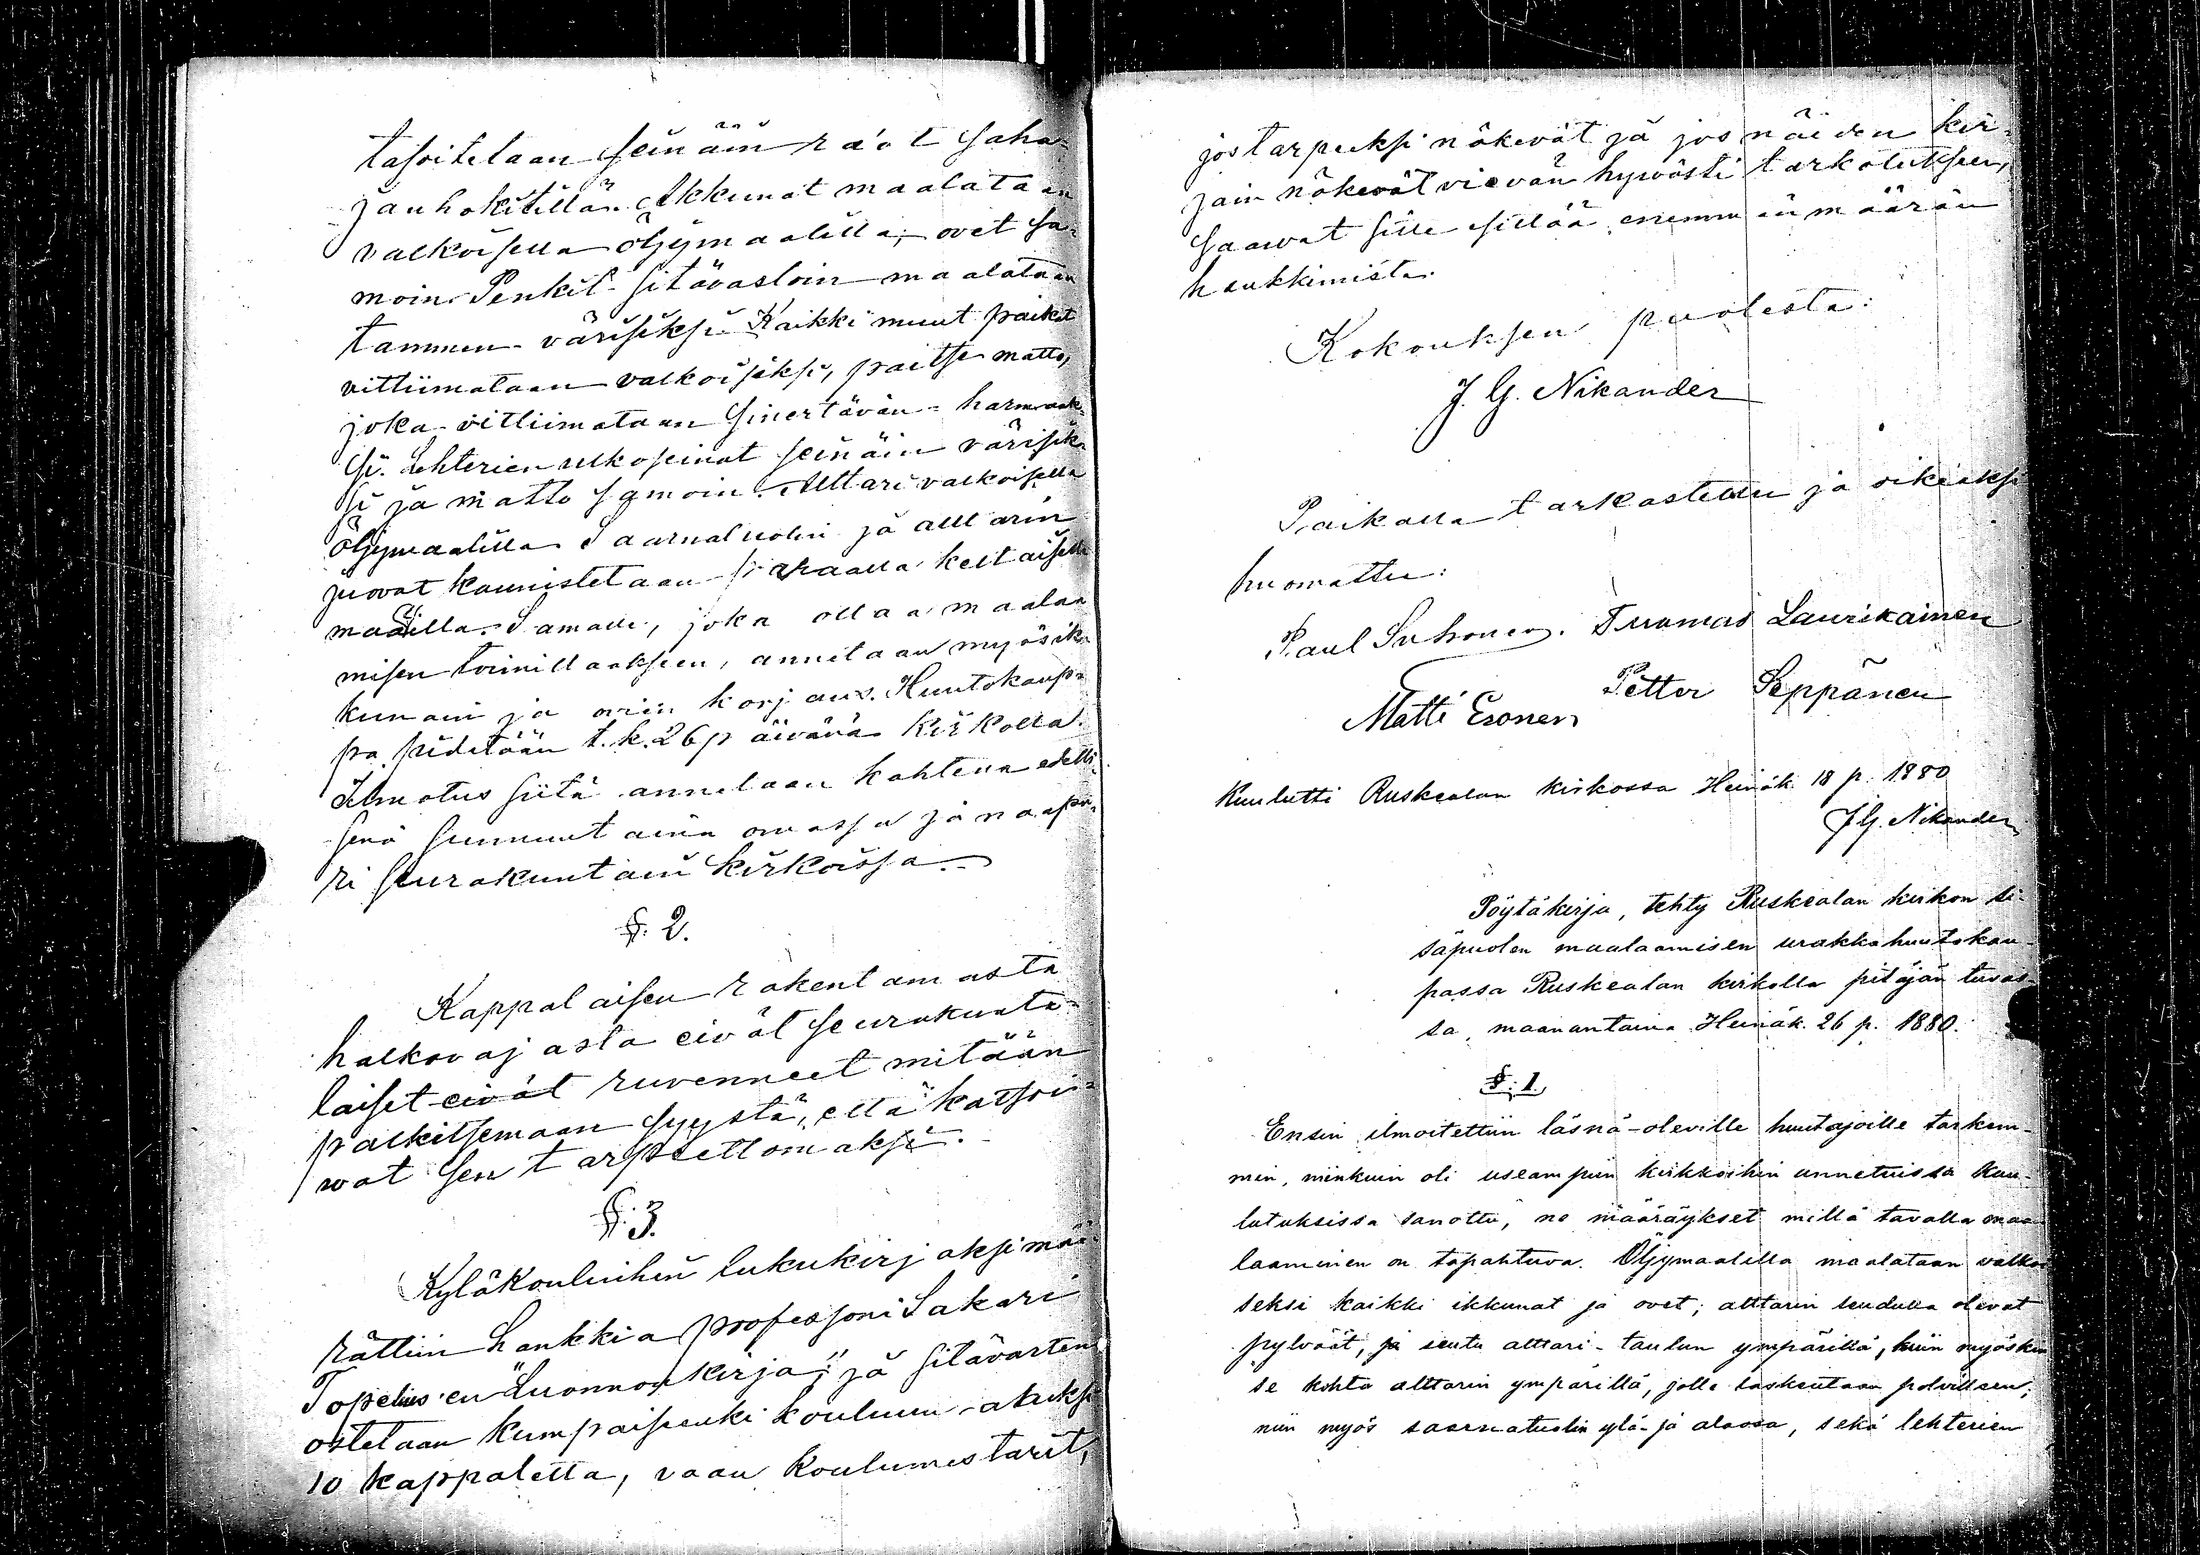 tasoitetaan seinäin ra'ot saha-
jauhokitillä. Akkunat maalataan
valkoisella öljymaalilla; ovet sa-
moin. Penkit sitävastoin maalataan
tammen-värisiksi. Kaikki muut paikat
vittiimataan valkoisiksi, paitse matto,
joka vitliimataan sinertävän-harmaak-
si. Lehterien ulkoseinät seinäin värisik-
si ja matto samoin. Alttari valkoisella
öljymaalilla. Saarnatuolin ja alttarin
juovat kaunistetaan keltaisella
maalilla. Samalle, joka ottaa maalaa-
misen toimittaakseen, annetaan myös ik-
kunain ja ovien korjaus. Huutokaup-
pa pidetään t. k. 26 p äivänä Kirkolla.
Ilmotus siitä annetaan kahtena edelli-
senä sunnuntaina omassa ja naapu-
ri seurakuntain kirkoissa.
§. 2.
Kappalaisen rakentamasta
halkovajasta eivät seurakunta-
laiset eivät ruvenneet mitään
palkitsemaan syystä, että katsoi-
vat sen tarpeettomaksi.
§. 3.
Kyläkouluihin lukukirjaksi mää-
rättiin hankkia professori Sakari
Topelius'en "Luonnon kirja" ja sitävarten
ostetaan kumpaiseenki kouluun aluksi
10 kappaletta, vaan koulumestarit,
jos tarpeeksi näkevät ja jos näiden kir-
jain näkevät vievän hyvästi tarkotukseen,
saavat siitä enemmän määrän
haukkimista.
Kokouksen puolesta:
J. G. Nikander
Paikalla tarkastettu ja oikeaksi
huomattu:
Paul Suhonen. Tuomas Laurikainen
Matti Eronen Petter Seppänen
Kuulutti Ruskealan kirkossa Heinäk. 18 p. 1880
J G. Nikander
Pöytäkirja, tehty Ruskealan kirkon si-
säpuolen maalaamisen urakkahuutokau-
passa Ruskealan kirkolla pitäjän tuvas-
sa, maanantaina Heinäk. 26 p. 1880.
§. 1.
Ensin ilmoitettiin läsnä-oleville huutajoille tarkem-
min, niinkuin oli useampiin kirkkoihin annetuissa kuu-
lutuksissa sanottu, ne määräykset millä tavalla maa-
laaminen on tapahtuva. Öljymaalilla maalataan valkoi-
seksi kaikki ikkunat ja ovet; alttarin seudulla olevat
pylväät, ja seutu alttari-taulun ympärillä, kuin myöskin
se kohta alttarin ympärillä, jolle lasketaan polvilleen;
niin myös saarnatuolin ylä- ja alaosa, sekä lehterien